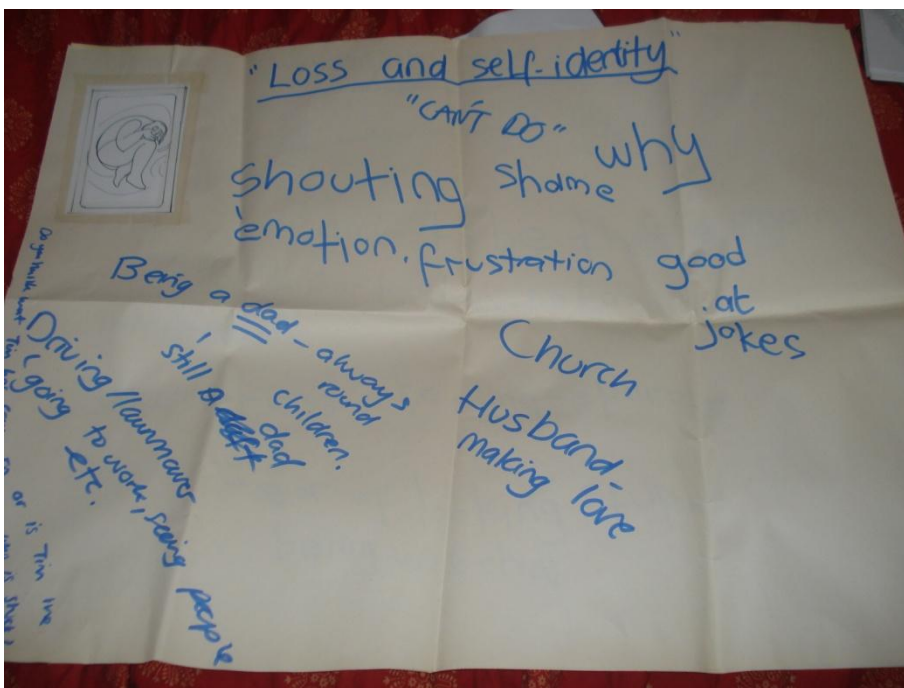 "Loss and self-identity"
"CAN'T DO"
why
shouting shame
emotion. frustration good
at
jokes
Being a dad - always
round
children.
still a dad
Church
Husband -
making love
Driving / lawnmower
going to work, seeing people
etc.
Do you think that Tim
or is Tim the